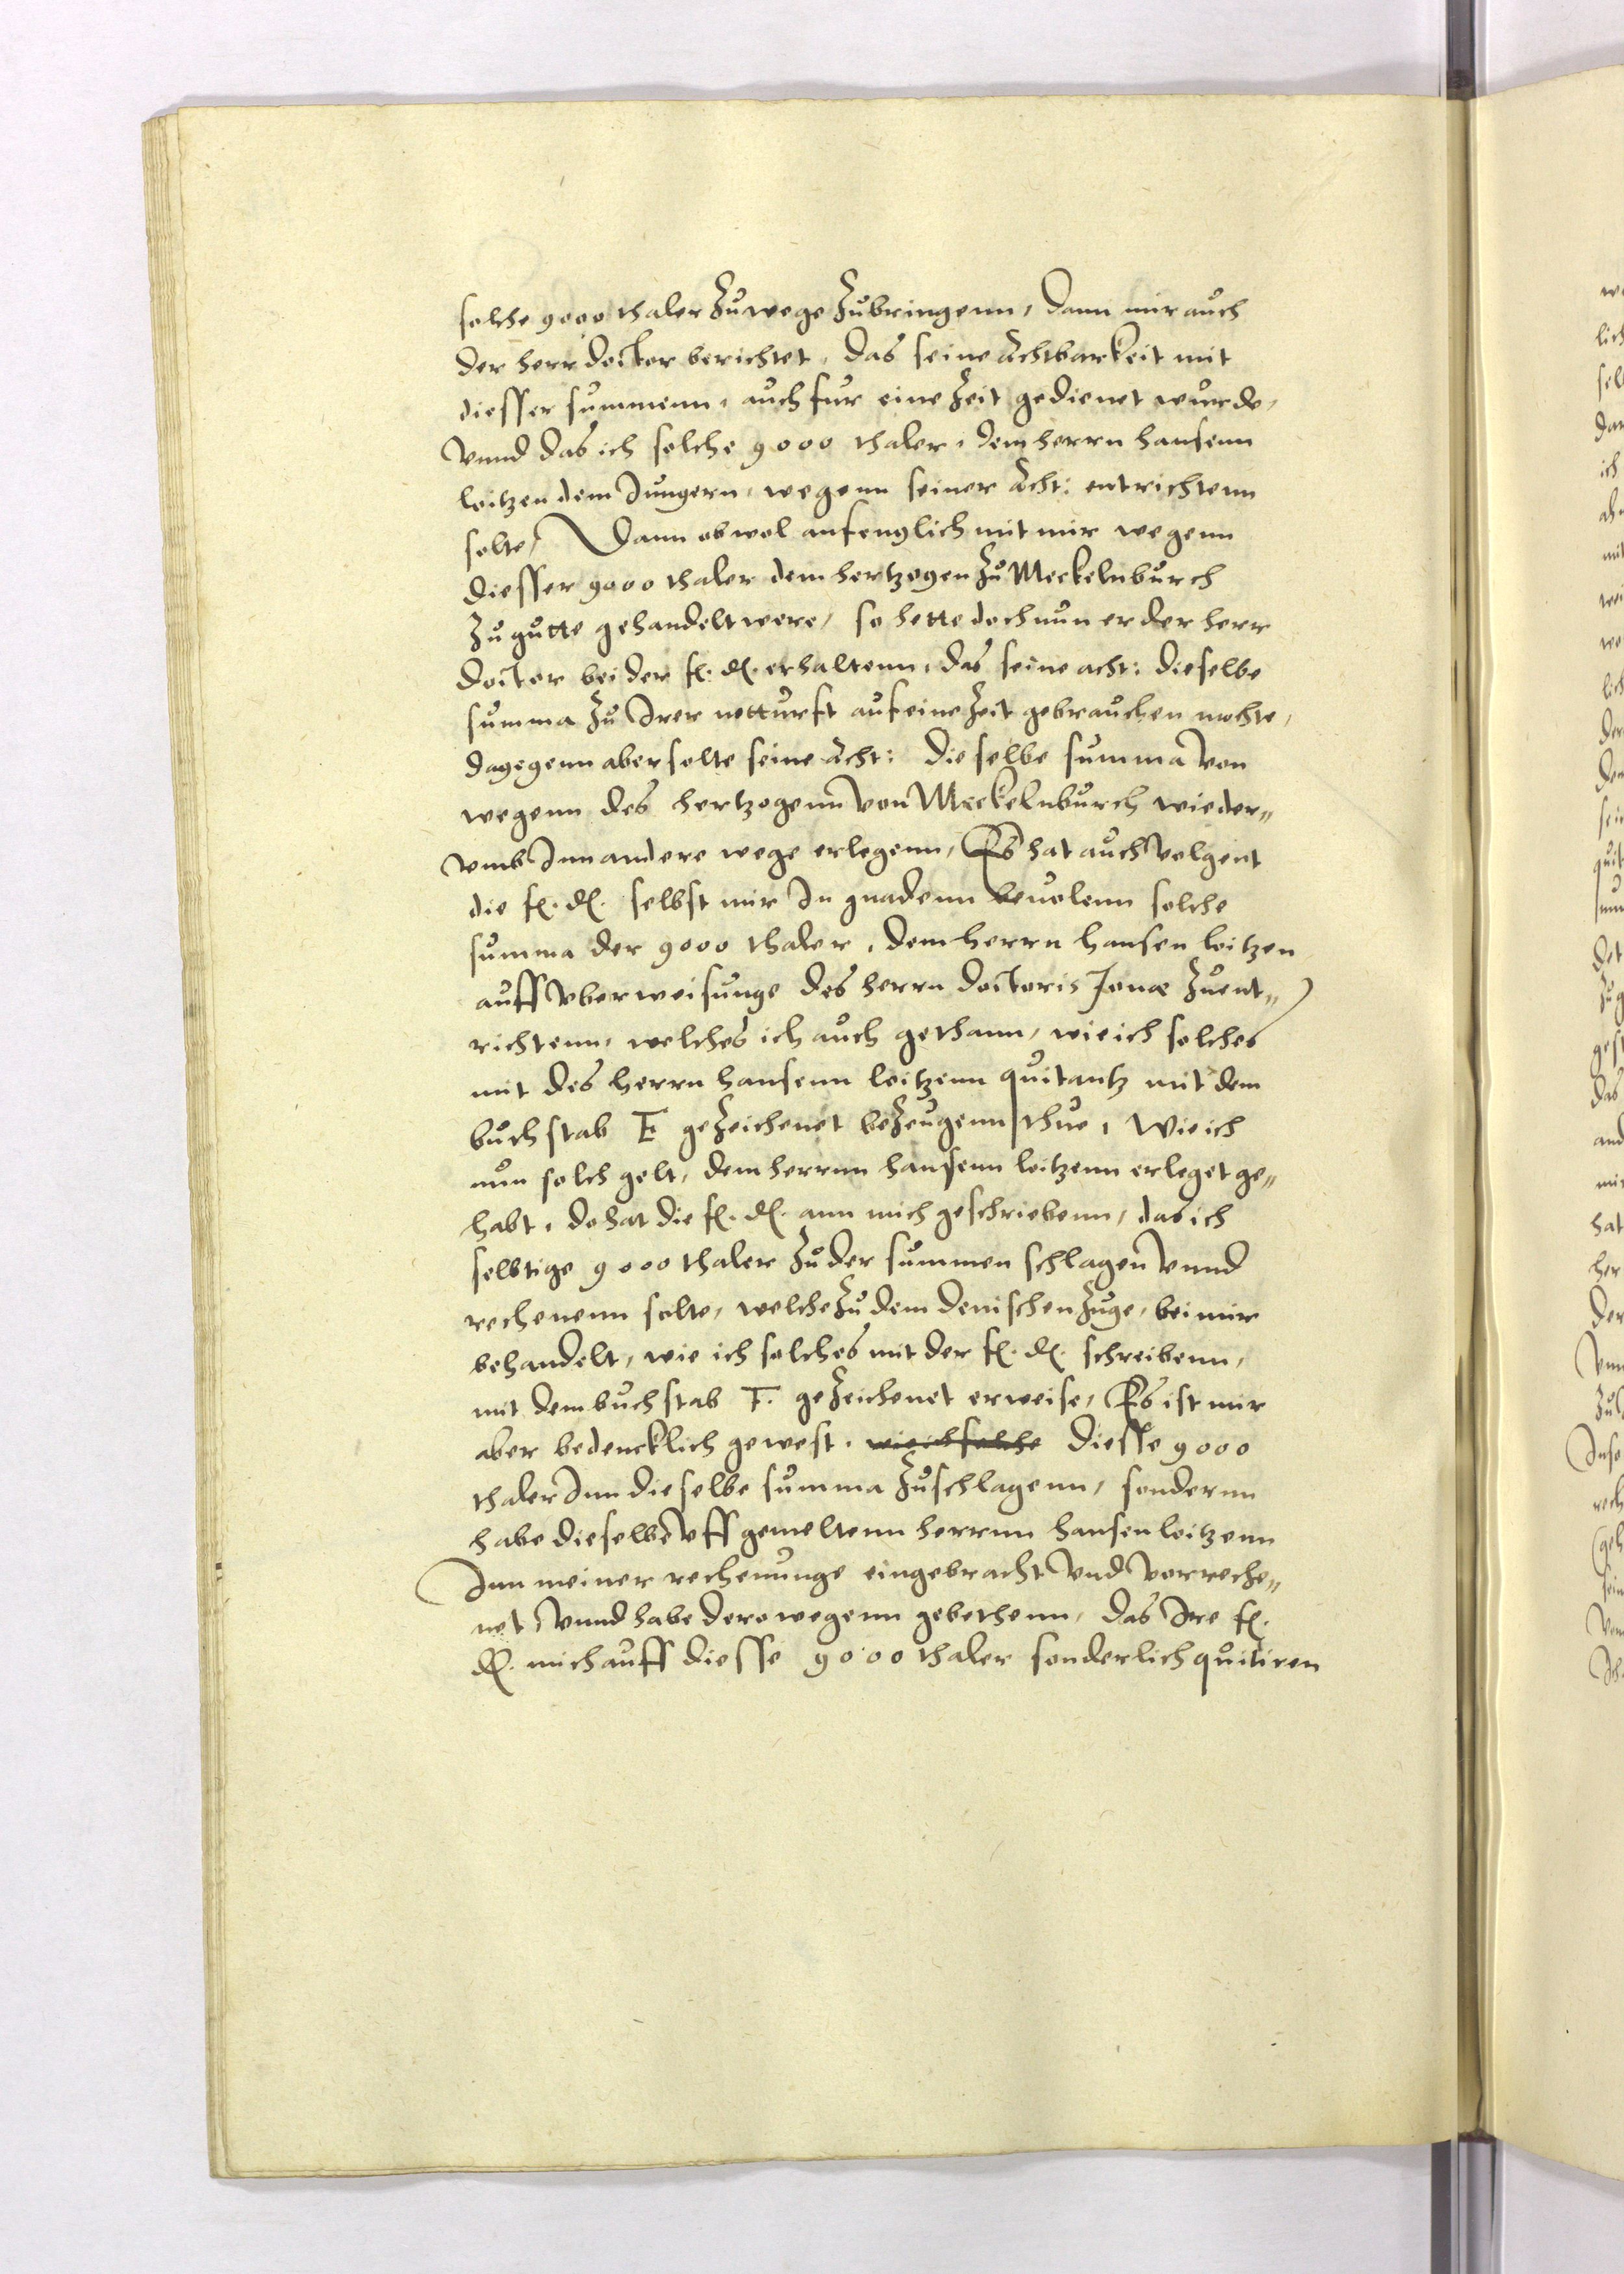 solche 9000 thaler zuwege zubringenn, dann mir auch
der herr doctor berichtet, das seine Achtbarkeit mit
diesser summenn, auch fur eine zeit gedienet wurde,
vnnd das ich solche 9000 thaler, dem herrn hansenn
leitzen dem Jungern, wegenn seiner Acht: entrichtenn
solte, Dann obwol anfenglich mit mir wegenn
diesser 9000 thaler dem hertzogen zu Meckelnburch
zu gutte gehandelt were, so hette doch nun er der herr
doctor bei der f. d. erhaltenn, das seine acht: dieselbe
summa zu Irer notturft auf eine zeit gebrauchen mochte,
dagegenn aber solte seine Acht: dieselbe summa von
wegenn des hertzogenn von Meckelnburch wieder„
vmb Inn andere wege erlegenn, Es hat auch volgent
die f. d. selbst mir In gnadenn beuolenn solche
summa der 9000 thaler, dem herrn hansen leitzen
auff vberweisunge des herrn doctoris Jonæ zuent„
richtenn, welches ich auch gethann, wie ich solches
mit des herrn hansenn leitzenn quitantz mit dem
buchstab E gezeichenet bezeugenn thue, Wie ich
nun solch gelt, dem herrnn hansenn leitzenn erleget ge„
habt, do hat die f. d. ann mich geschriebenn, das ich
selbtige 9000 thaler zu der summen schlagen vnnd
rechenenn solte, welche zu dem denischen zuge, bei mir
behandelt, wie ich solches mit der f. d. schreibenn,
mit dem buchstab F. gezeichenet erweise, Es ist mir
aber bedencklich gewest, wie ich solche diesse 9000
thaler Inn dieselbe summa zuschlagenn, sondernn
habe dieselbe vff gemeltenn herrnn hansen leitzenn
Inn meiner rechenunge eingebracht vnd vorreche„
net, vnnd habe derowegenn gebethenn, das Ire f.
d. mich auff diesse 9000 thaler sonderlich quitiren